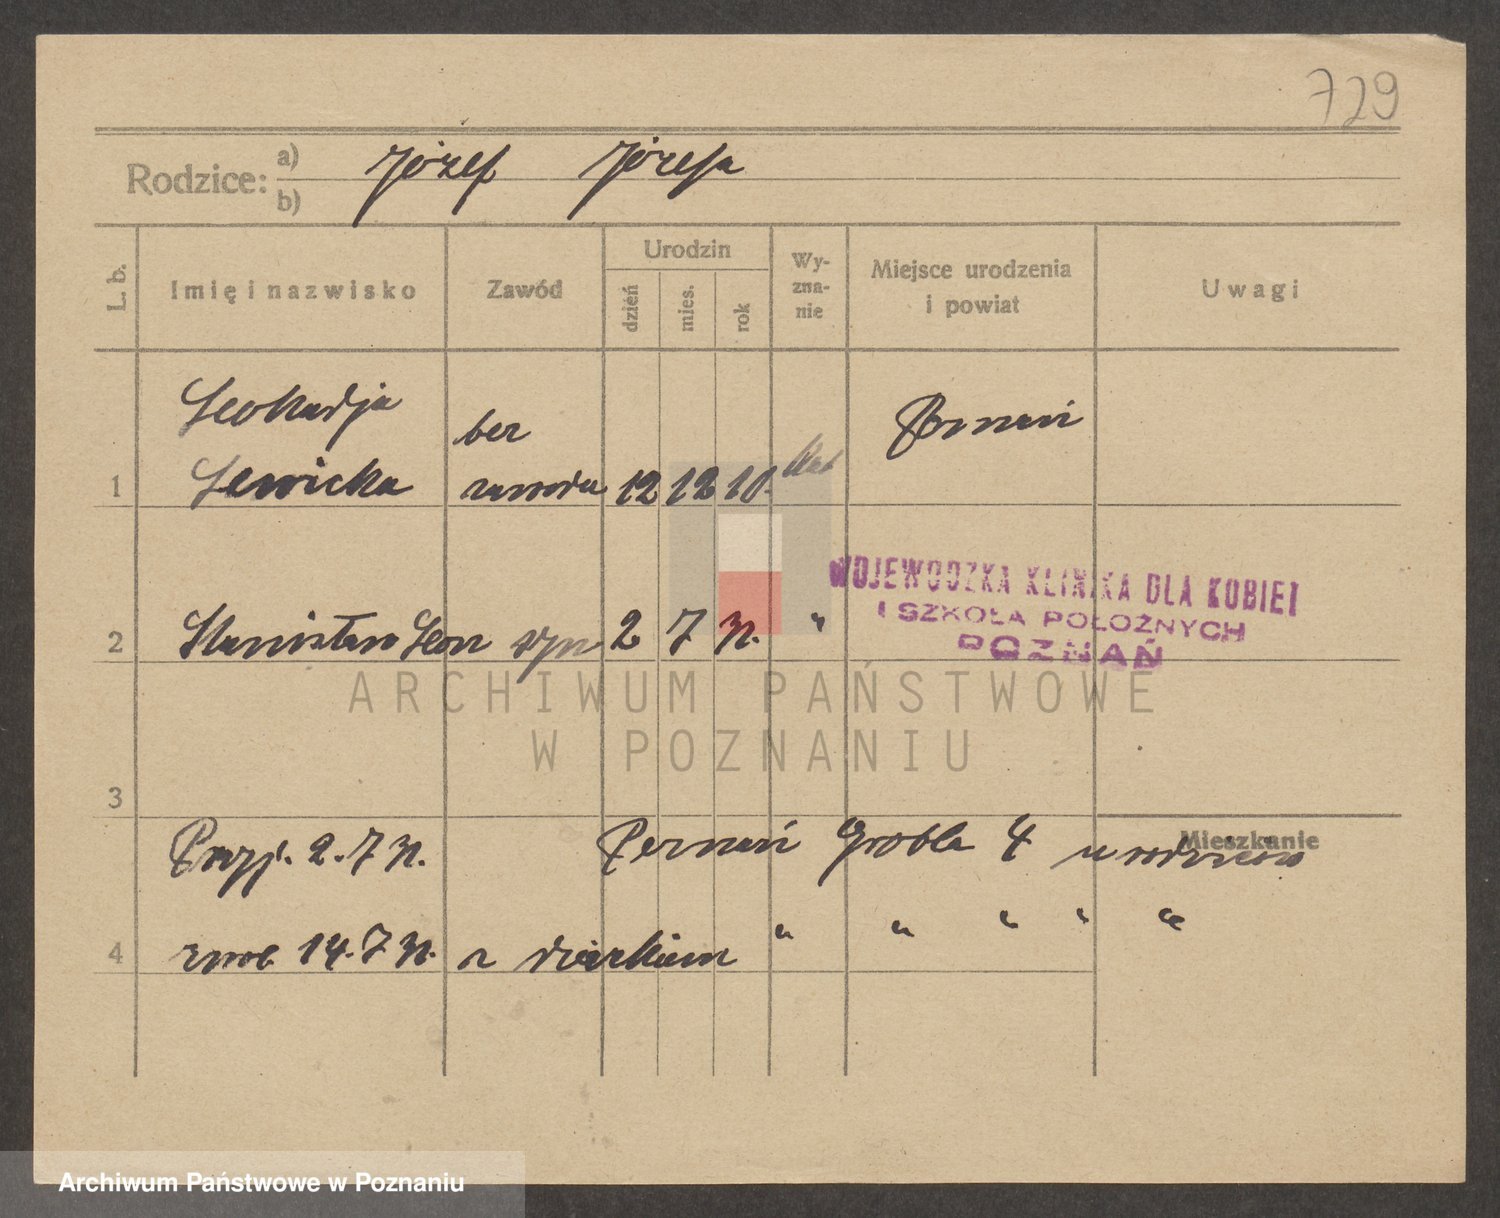 729
Rodzice: a) Józef Józefa
b)
L. b. Imię i nazwisko Zawód Urodzin dzień mies. rok Wy-zna-nie Miejsce urodzenia i powiat Uwagi
Leokadja bez Poznań
1 Lewicka zawodu 12 12 10. kat
WOJEWÓDZKA KLINIKA DLA KOBIET
I SZKOŁA POŁOŻNYCH
POZNAŃ
2 Stanisław Leon syn 2 7 31. "
ARCHIWUM PAŃSTWOWE
W POZNANIU
3
Mieszkanie
Przyj. 2. 7 31. Poznań Grobla 4 u rodziców
4 31. z dzieckiem " " " " "
Archiwum Państwowe w Poznaniu